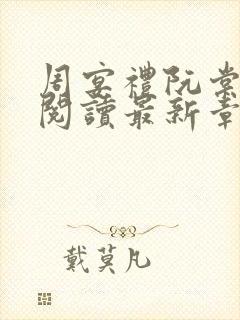 周宴禮阮棠
閱讀最新章
戴莫凡